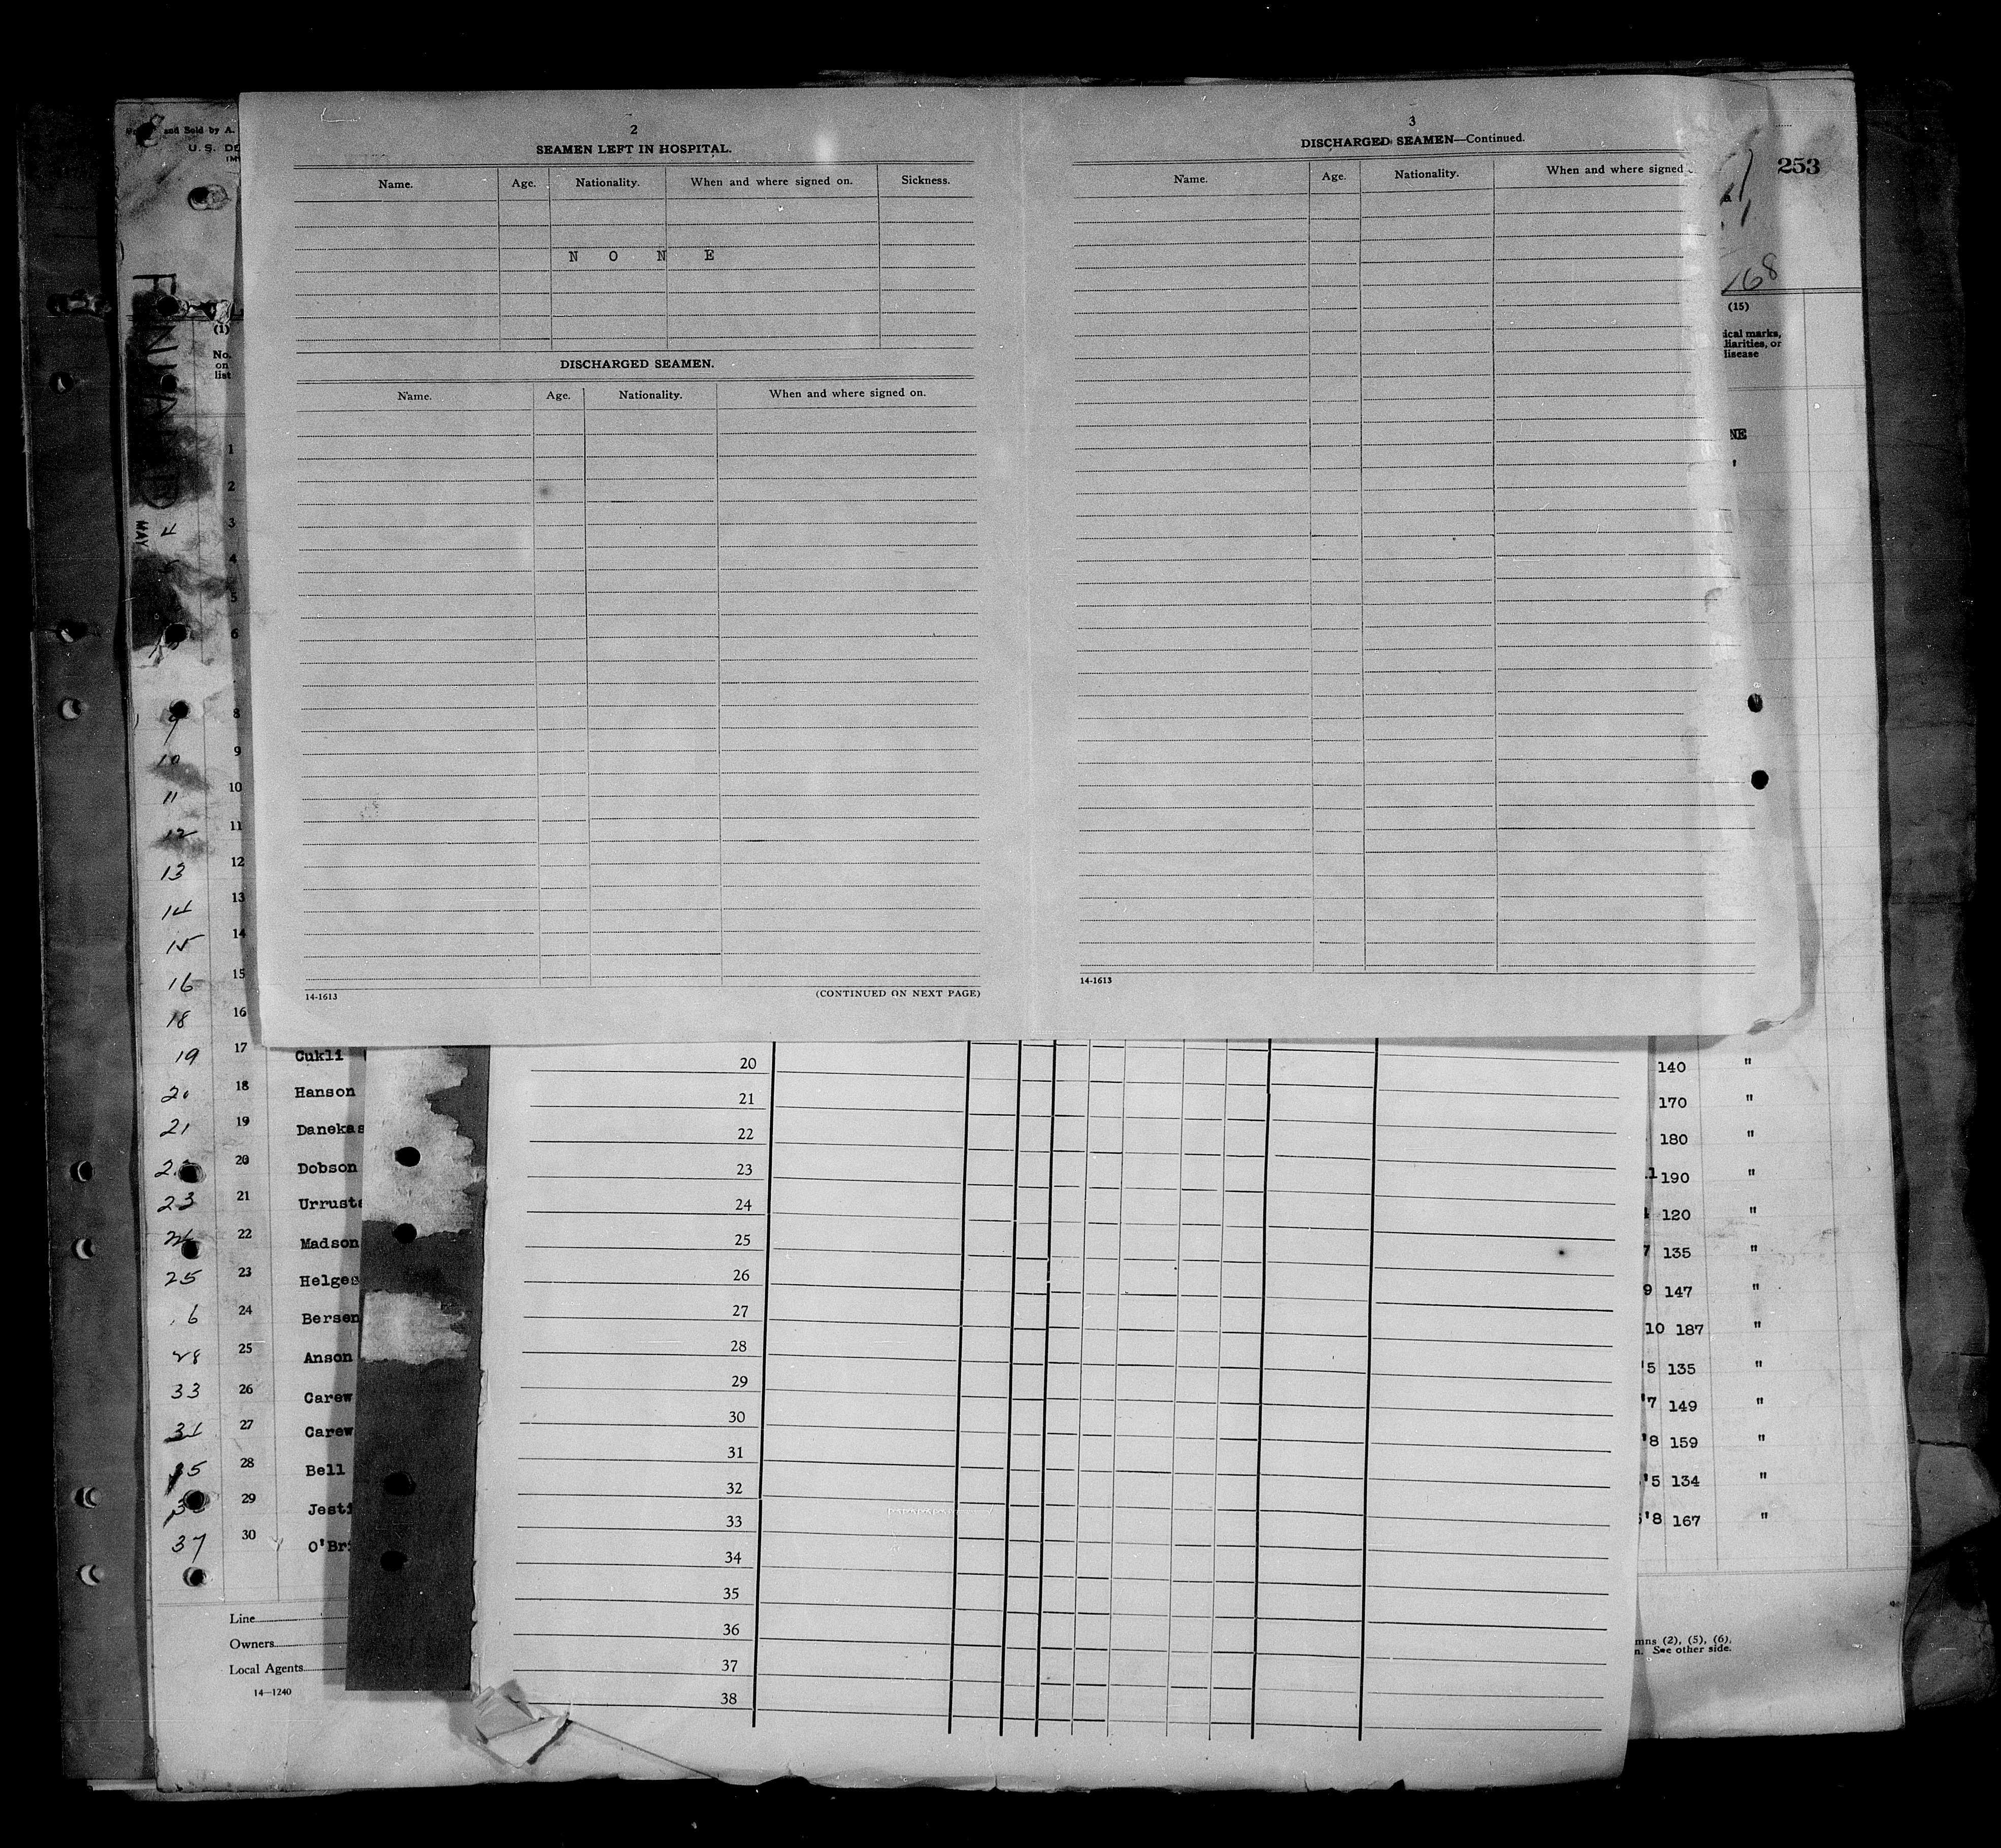 and Sold by A.
U. S. DE
253
168
(1)
No.
on
list
(15)
ical marks,
liarities, or
disease
NE
MAY
2
SEAMEN LEFT IN HOSPITAL.
Name. Age. Nationality. When and where signed on. Sickness.
N O N E
DISCHARGED SEAMEN.
Name. Age. Nationality. When and where signed on.
14-1613 (CONTINUED ON NEXT PAGE)
3
DISCHARGED SEAMEN—Continued.
Name. Age. Nationality. When and where signed
14-1613
1
2
3
4
5
6
9 8
10 9
11 10
12 11
13 12
14 13
15 14
16 15
18 16
19 17 Cukli
18 Hanson
21 19 Danekas
20 Dobson
23 21 Urrusta
22 Madson
25 23 Helges
6 24 Bersen
28 25 Anson
33 26 Carew
27 Carew
28 Bell
29 Jesti
37 30 O'Bri
20
21
22
23
24
25
26
27
28
29
30
31
32
33
34
35
36
37
38
140 "
170 "
180 "
190 "
120 "
7 135 "
9 147 "
10 187 "
'5 135 "
'7 149 "
'8 159 "
'5 134 "
'8 167 "
Line
Owners
Local Agents
14—1240
mns (2), (5), (6),
n. See other side.